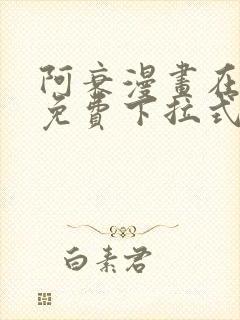 阿衰漫畫在
免費下拉式
白素君